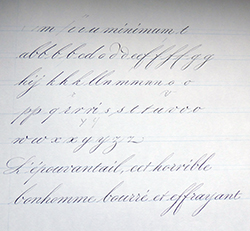 minimum t
abbbbcdoddefffffgg
hij khkllnmmnno o
pp q r r r i s s e t u v o o
w w x x y y z z
L'épouvantail, cet horrible
bonhomme bourré et effrayant